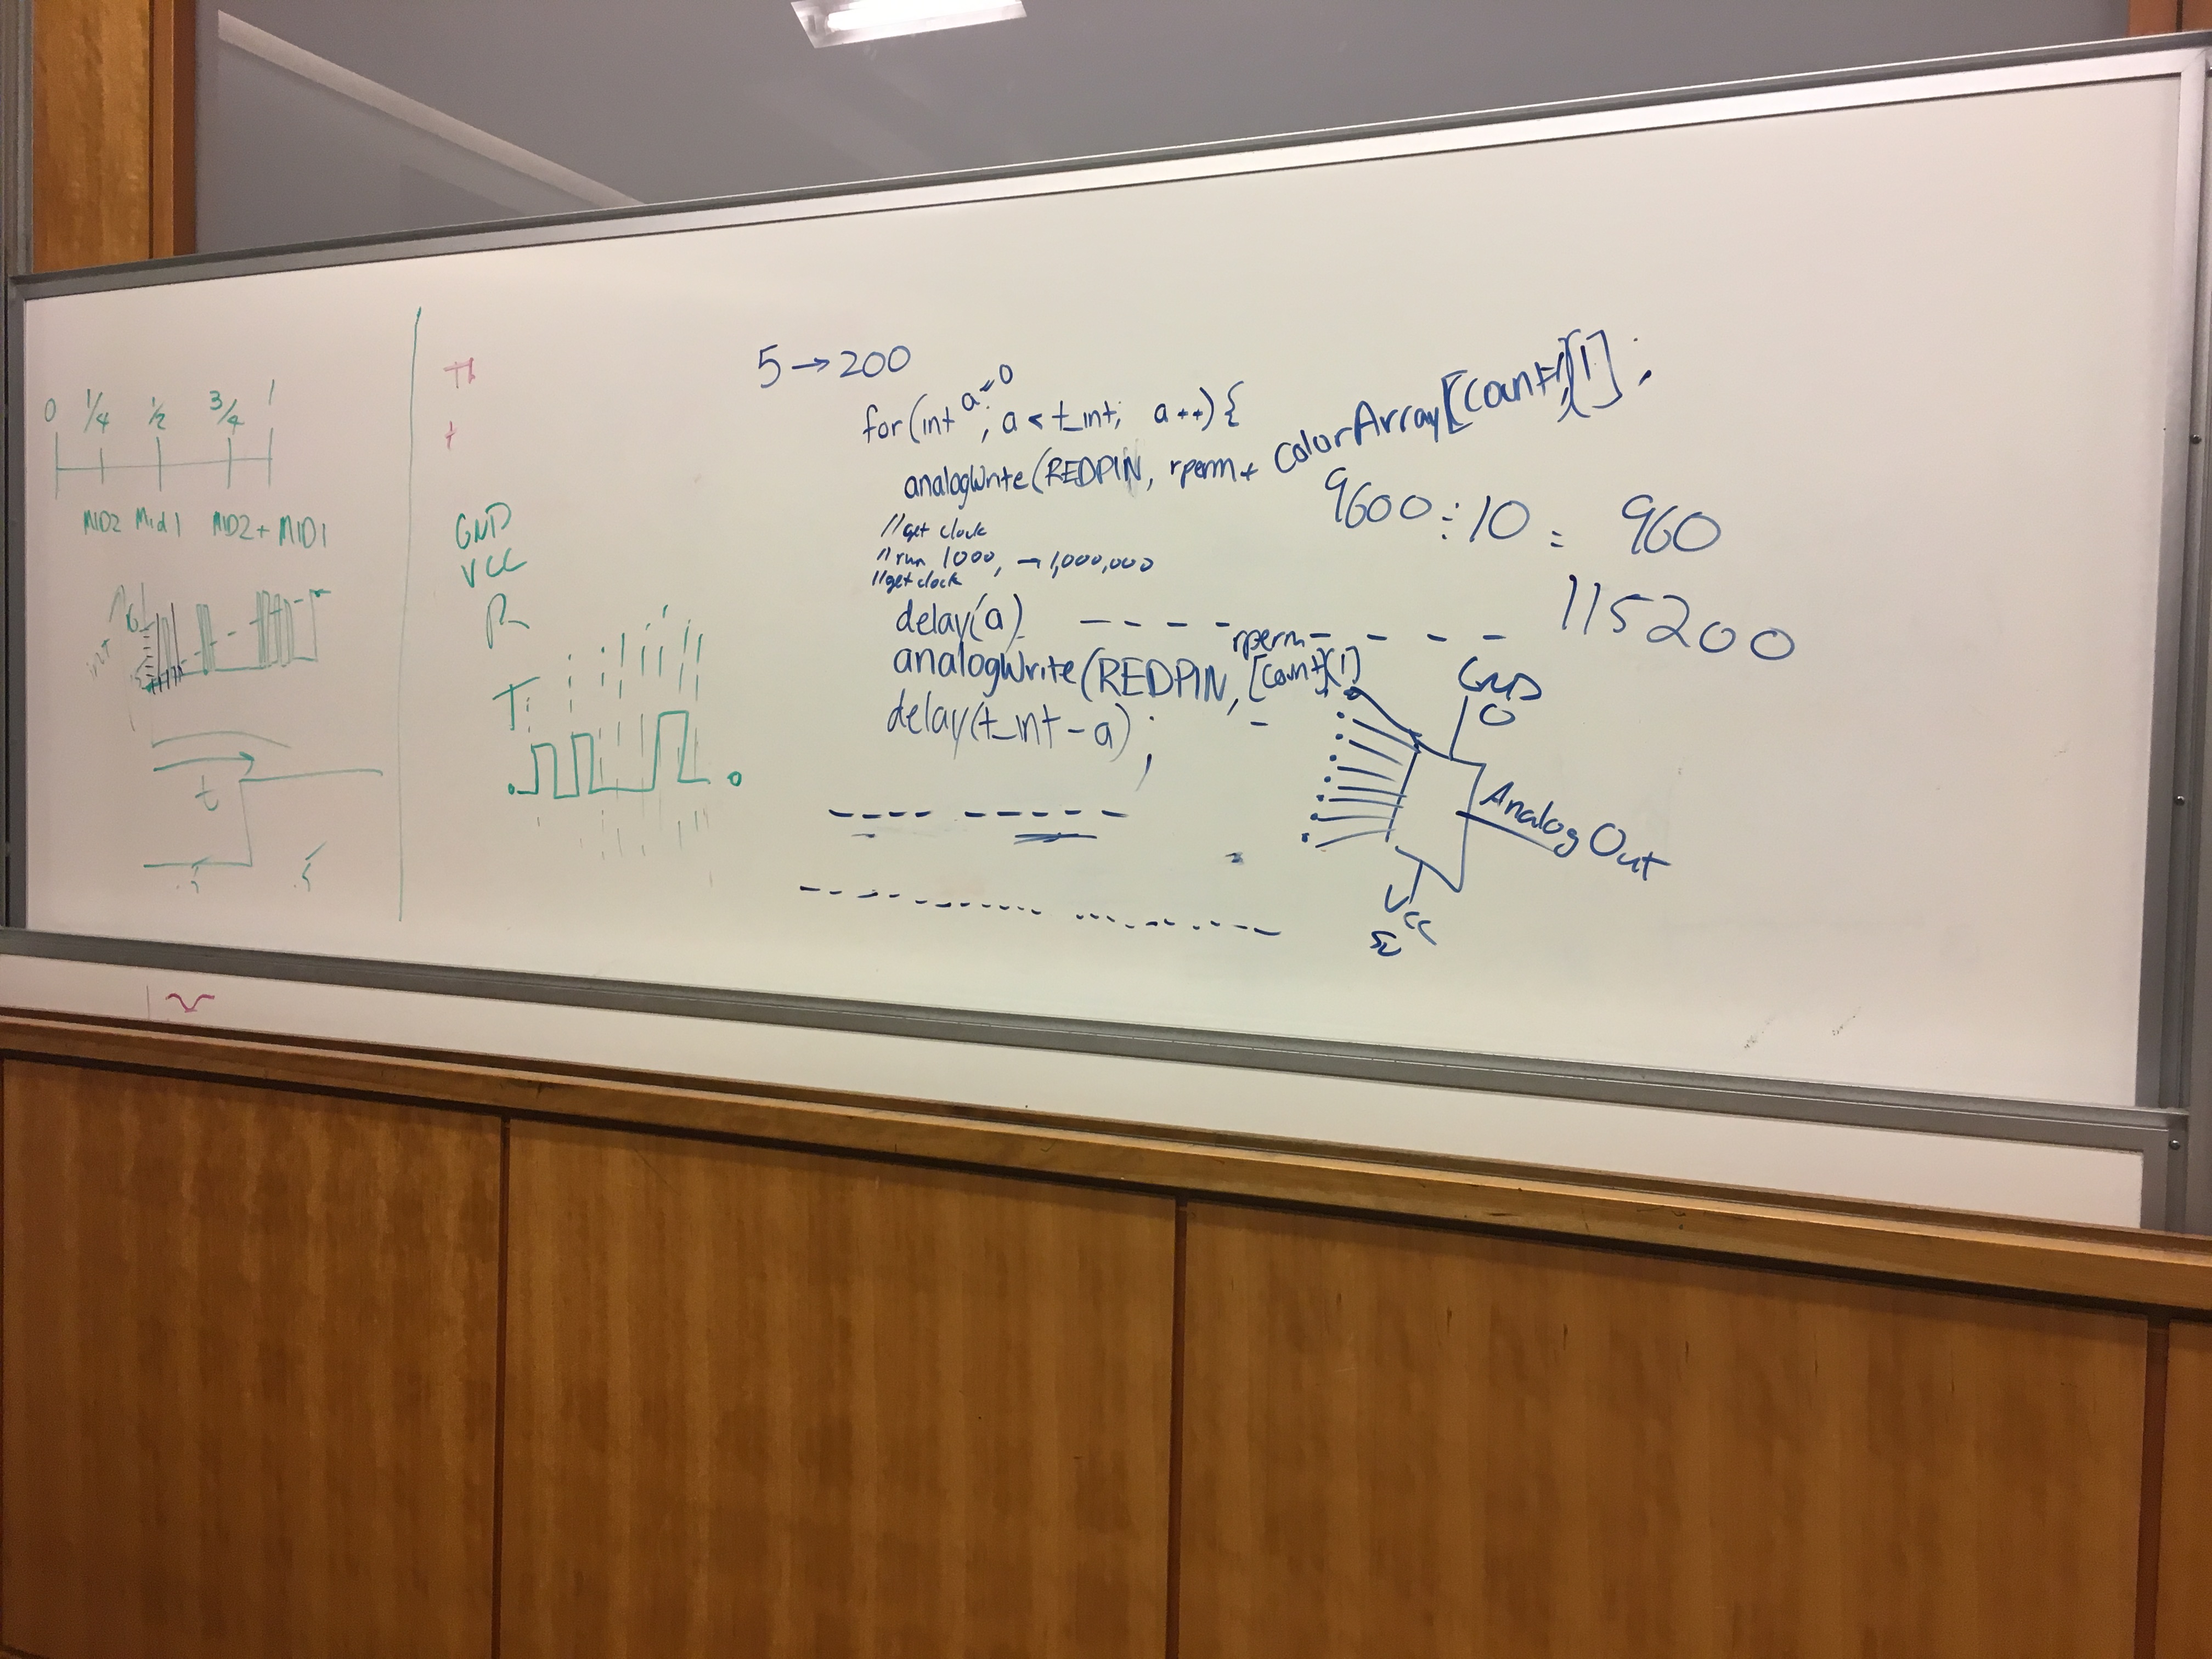 0 1/4 1/2 3/4 1
MID2 Mid1 MID2+MID1
int
t
.5 .5
GND
VCC
R
T
5 → 200
for(int a=0; a < t_int; a++){
analogWrite(REDPIN, rperm + colorArray[count][1];
//get clock
//run 1000, → 1,000,000
//get clock
delay(a)
analogWrite(REDPIN, rperm - [count][1]
delay(t_int - a);
9600 ÷ 10 = 960
115200
GND
0
Analog Out
Vcc
5V